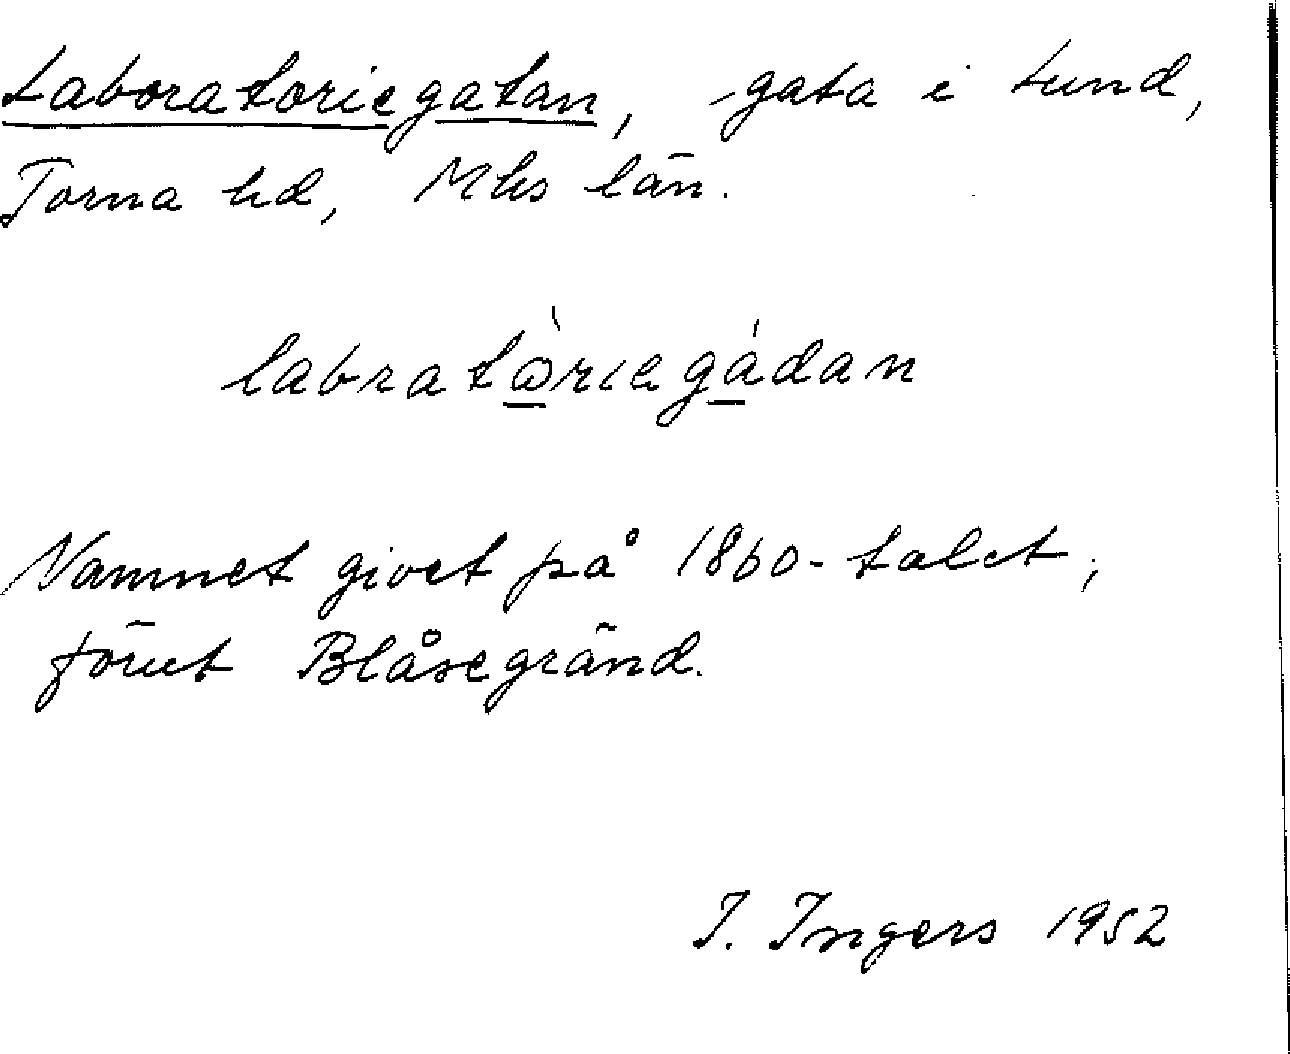 Laboratoriegatan, gata i Lund,
Torna hd, Mhs län.
labratò̱riegá̱dan
Namnet givet på 1860-talet;
förut Blåsegränd.
I. Ingers 1952